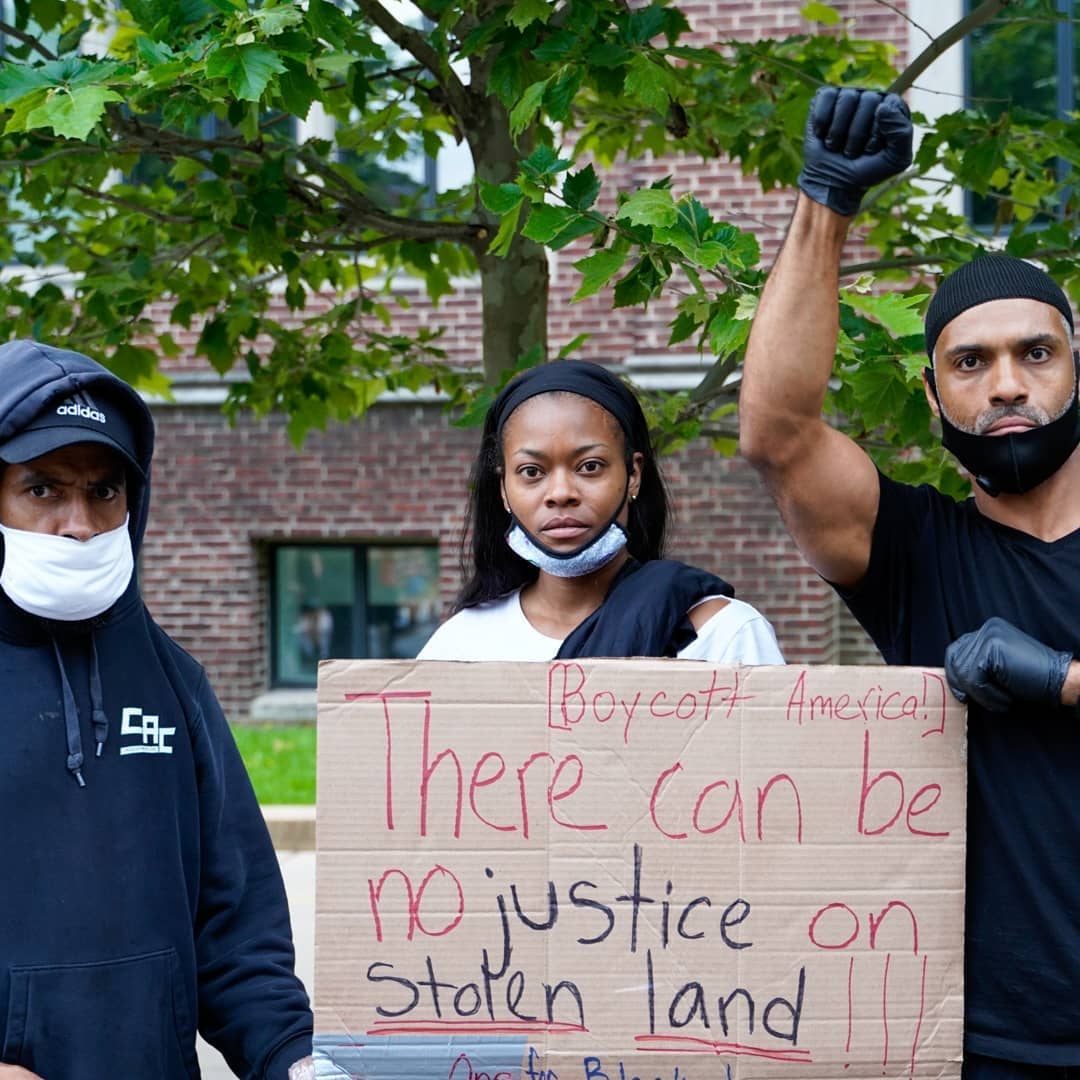 adidas
CAC
[Boycott America!]
There can be
no justice on
stolen land!!!
for